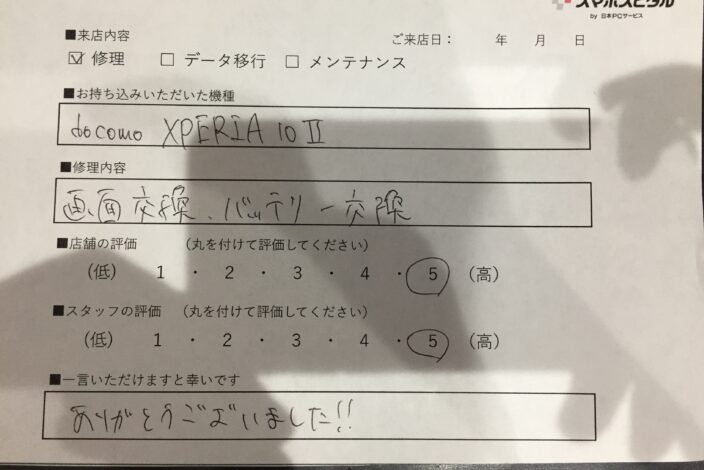 スマホスピタル
by 日本PCサービス
■来店内容 ご来店日： 年 月 日
☑ 修理 □ データ移行 □ メンテナンス
■お持ち込みいただいた機種
docomo XPERIA 10 II
■修理内容
画面交換、バッテリー交換
■店舗の評価 （丸を付けて評価してください）
（低） 1 ・ 2 ・ 3 ・ 4 ・ 5 （高）
■スタッフの評価 （丸を付けて評価してください）
（低） 1 ・ 2 ・ 3 ・ 4 ・ 5 （高）
■一言いただけますと幸いです
ありがとうございました!!